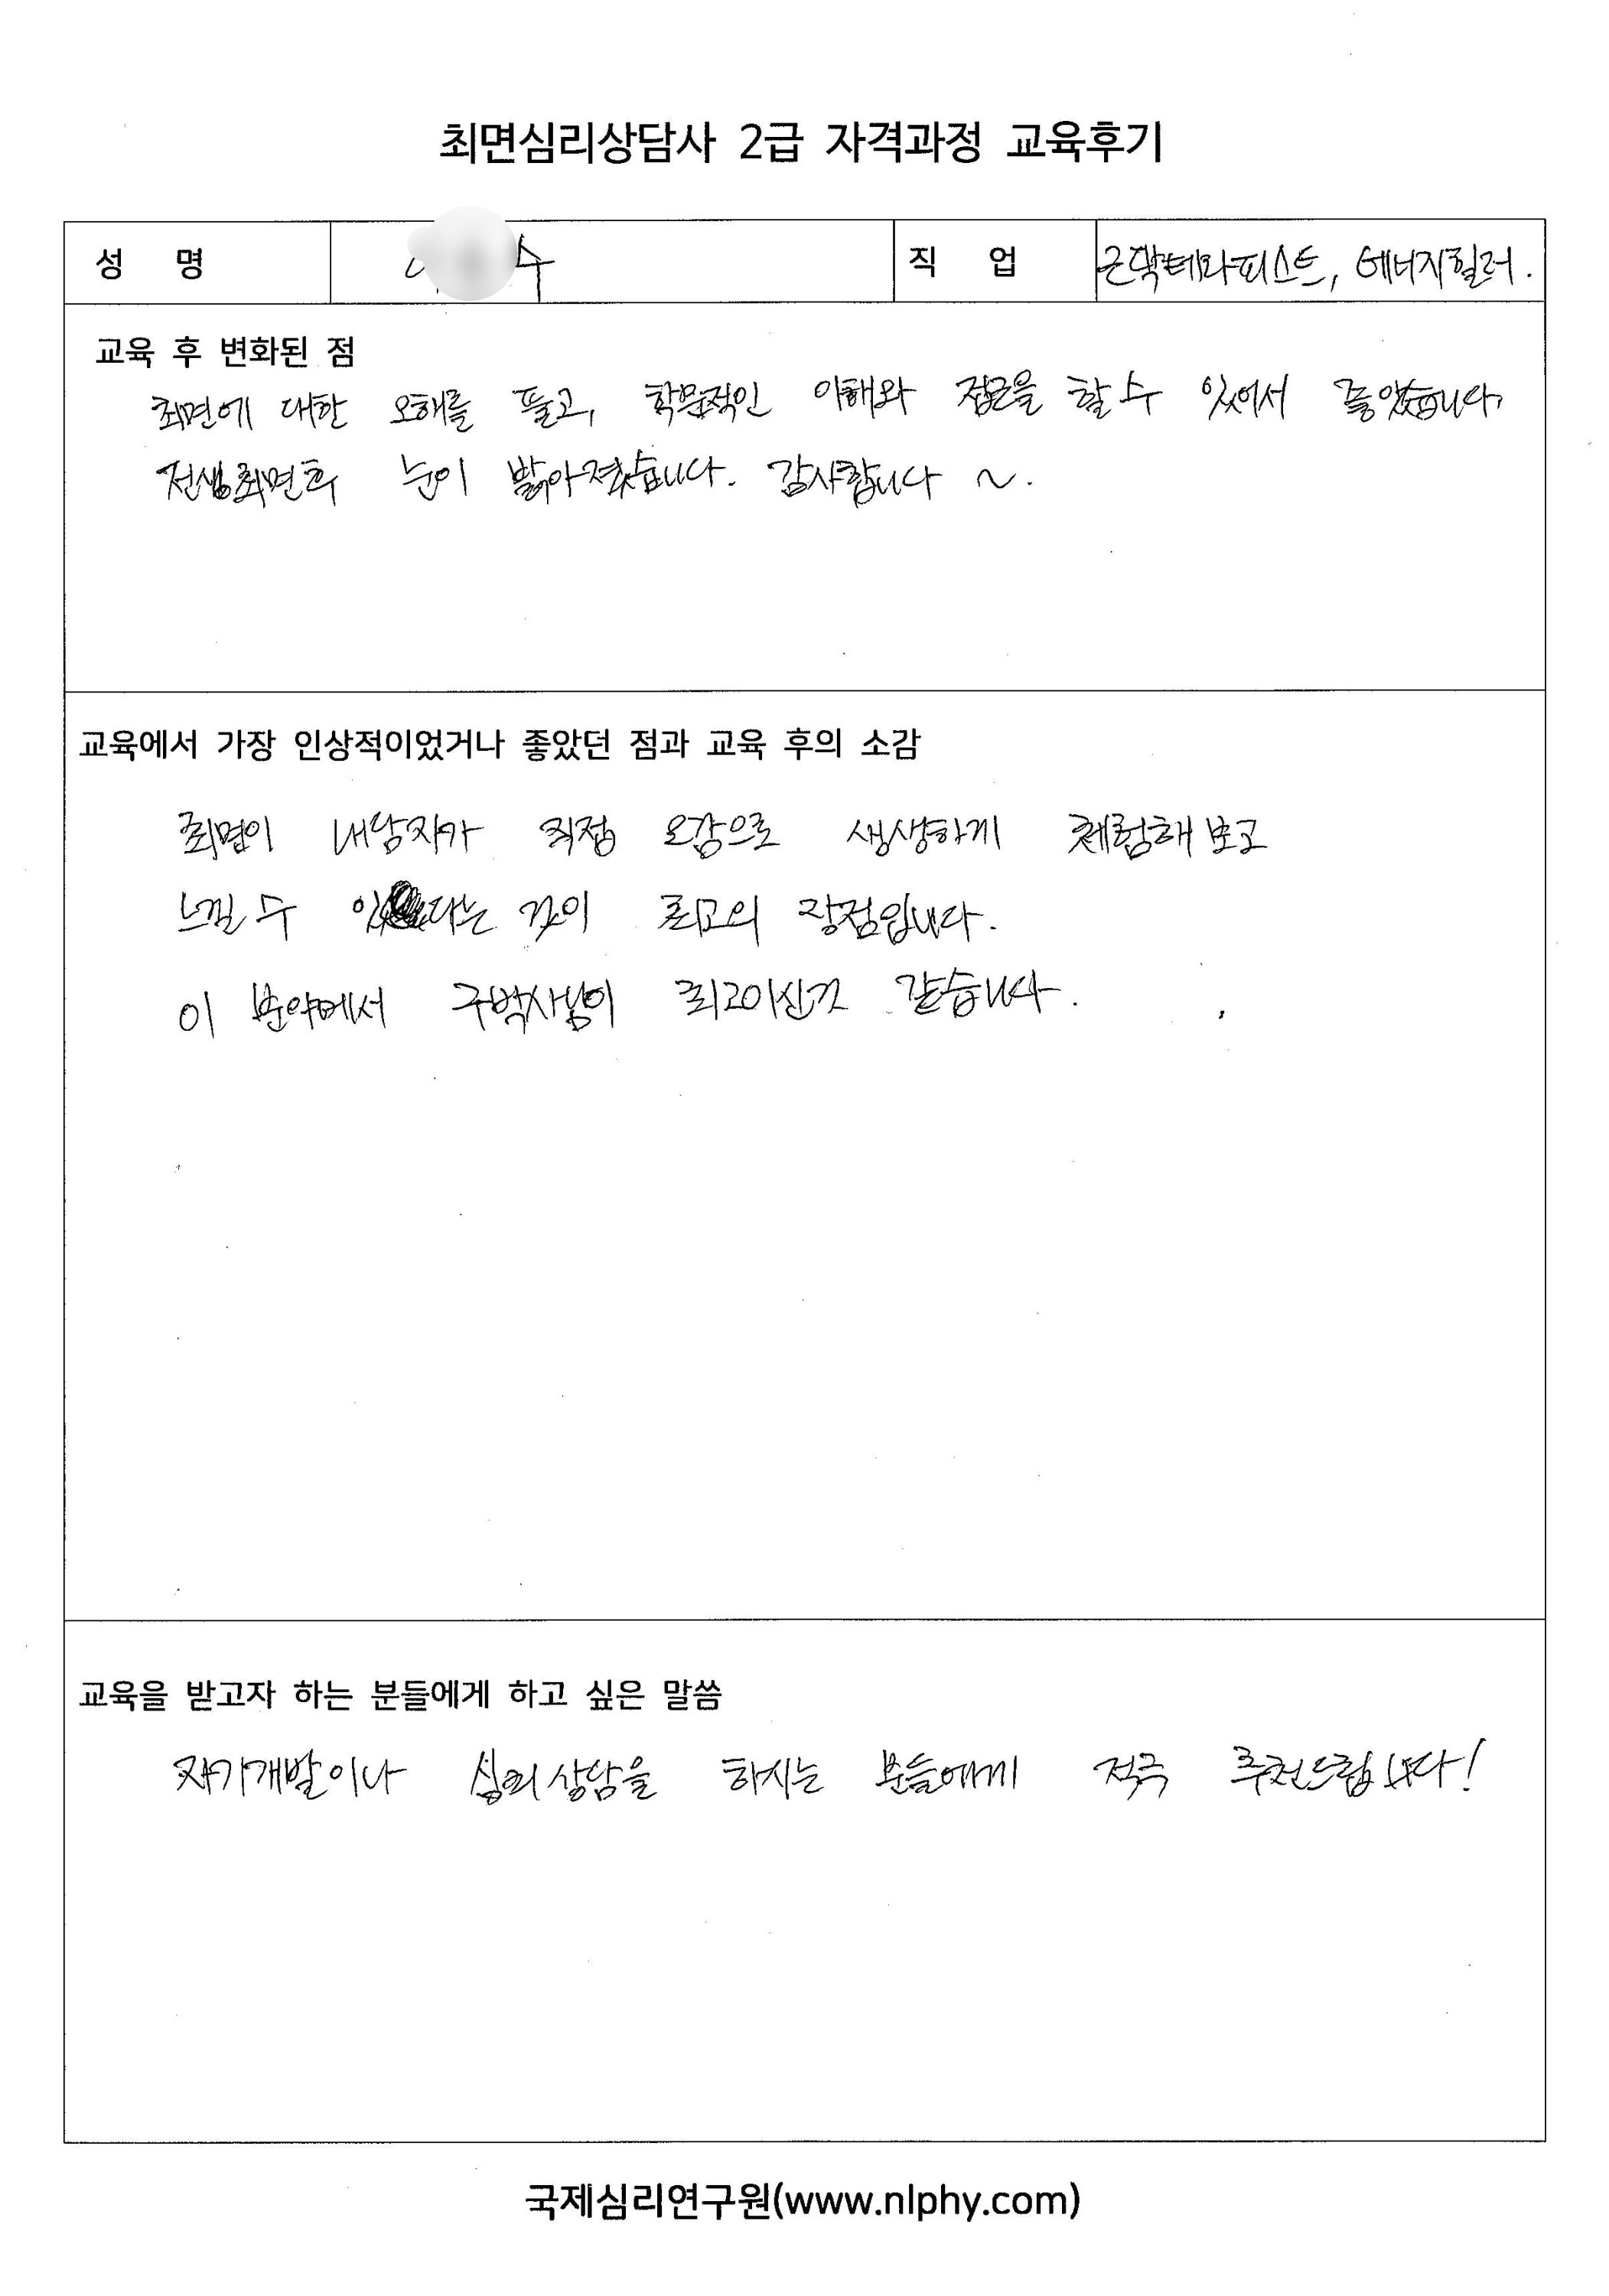 최면심리상담사 2급 자격과정 교육후기
성 명 수 직 업 근막테라피스트, 에너지힐러.
교육 후 변화된 점
최면에 대한 오해를 풀고, 학문적인 이해와 접근을 할 수 있어서 좋았습니다,
전생최면후 눈이 밝아졌습니다. 감사합니다 ~.
교육에서 가장 인상적이었거나 좋았던 점과 교육 후의 소감
최면이 내담자가 직접 오감으로 생생하게 체험해 보고
느낄 수 있다는 것이 최고의 장점입니다.
이 분야에서 구박사님이 최고이신것 같습니다.
교육을 받고자 하는 분들에게 하고 싶은 말씀
자기개발이나 심리상담을 하시는 분들에게 적극 추천드립니다!
국제심리연구원(www.nlphy.com)